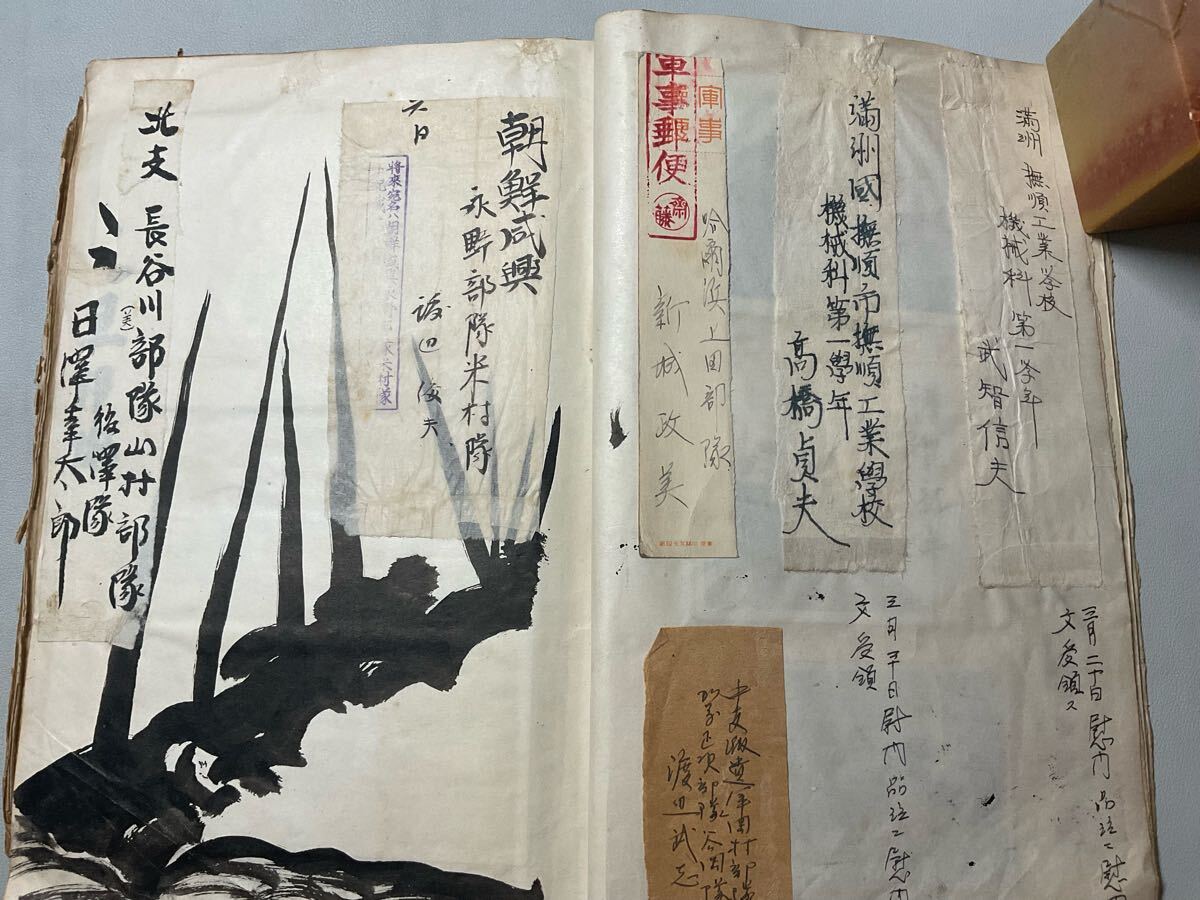 満洲 撫順工業学校
機械科 第一学年
武智信夫
三月二十日 慰問品並ニ慰問
文受領ス
満洲國撫順市撫順工業學校
機械科第一學年
高橋貞夫
三月二十日 慰問品並ニ慰問
文受領
軍事
軍事郵便
齋藤
哈爾浜上田部隊
新城政美
渡辺武志
朝鮮咸興
永野部隊米村隊
渡辺俊夫
六日
北支 長谷川部隊山村部隊
後澤隊
日澤幸太郎